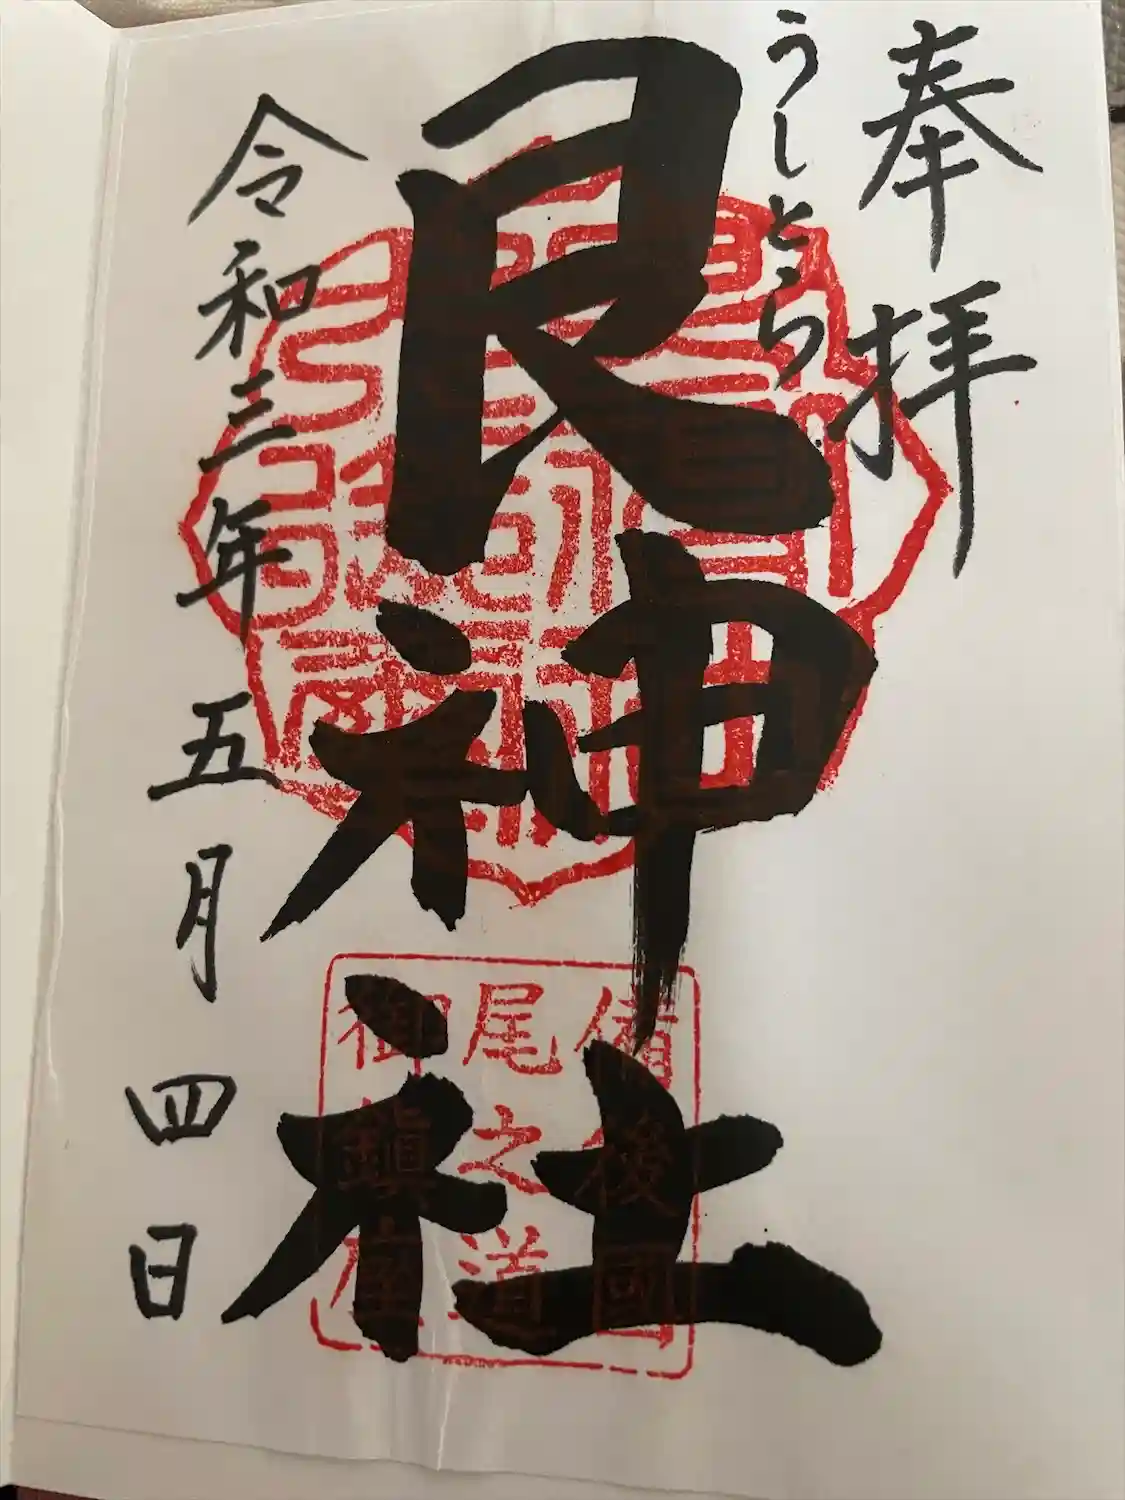 奉拝
うしとら
艮神社
備後國
尾之道
御鎮座
令和三年五月四日